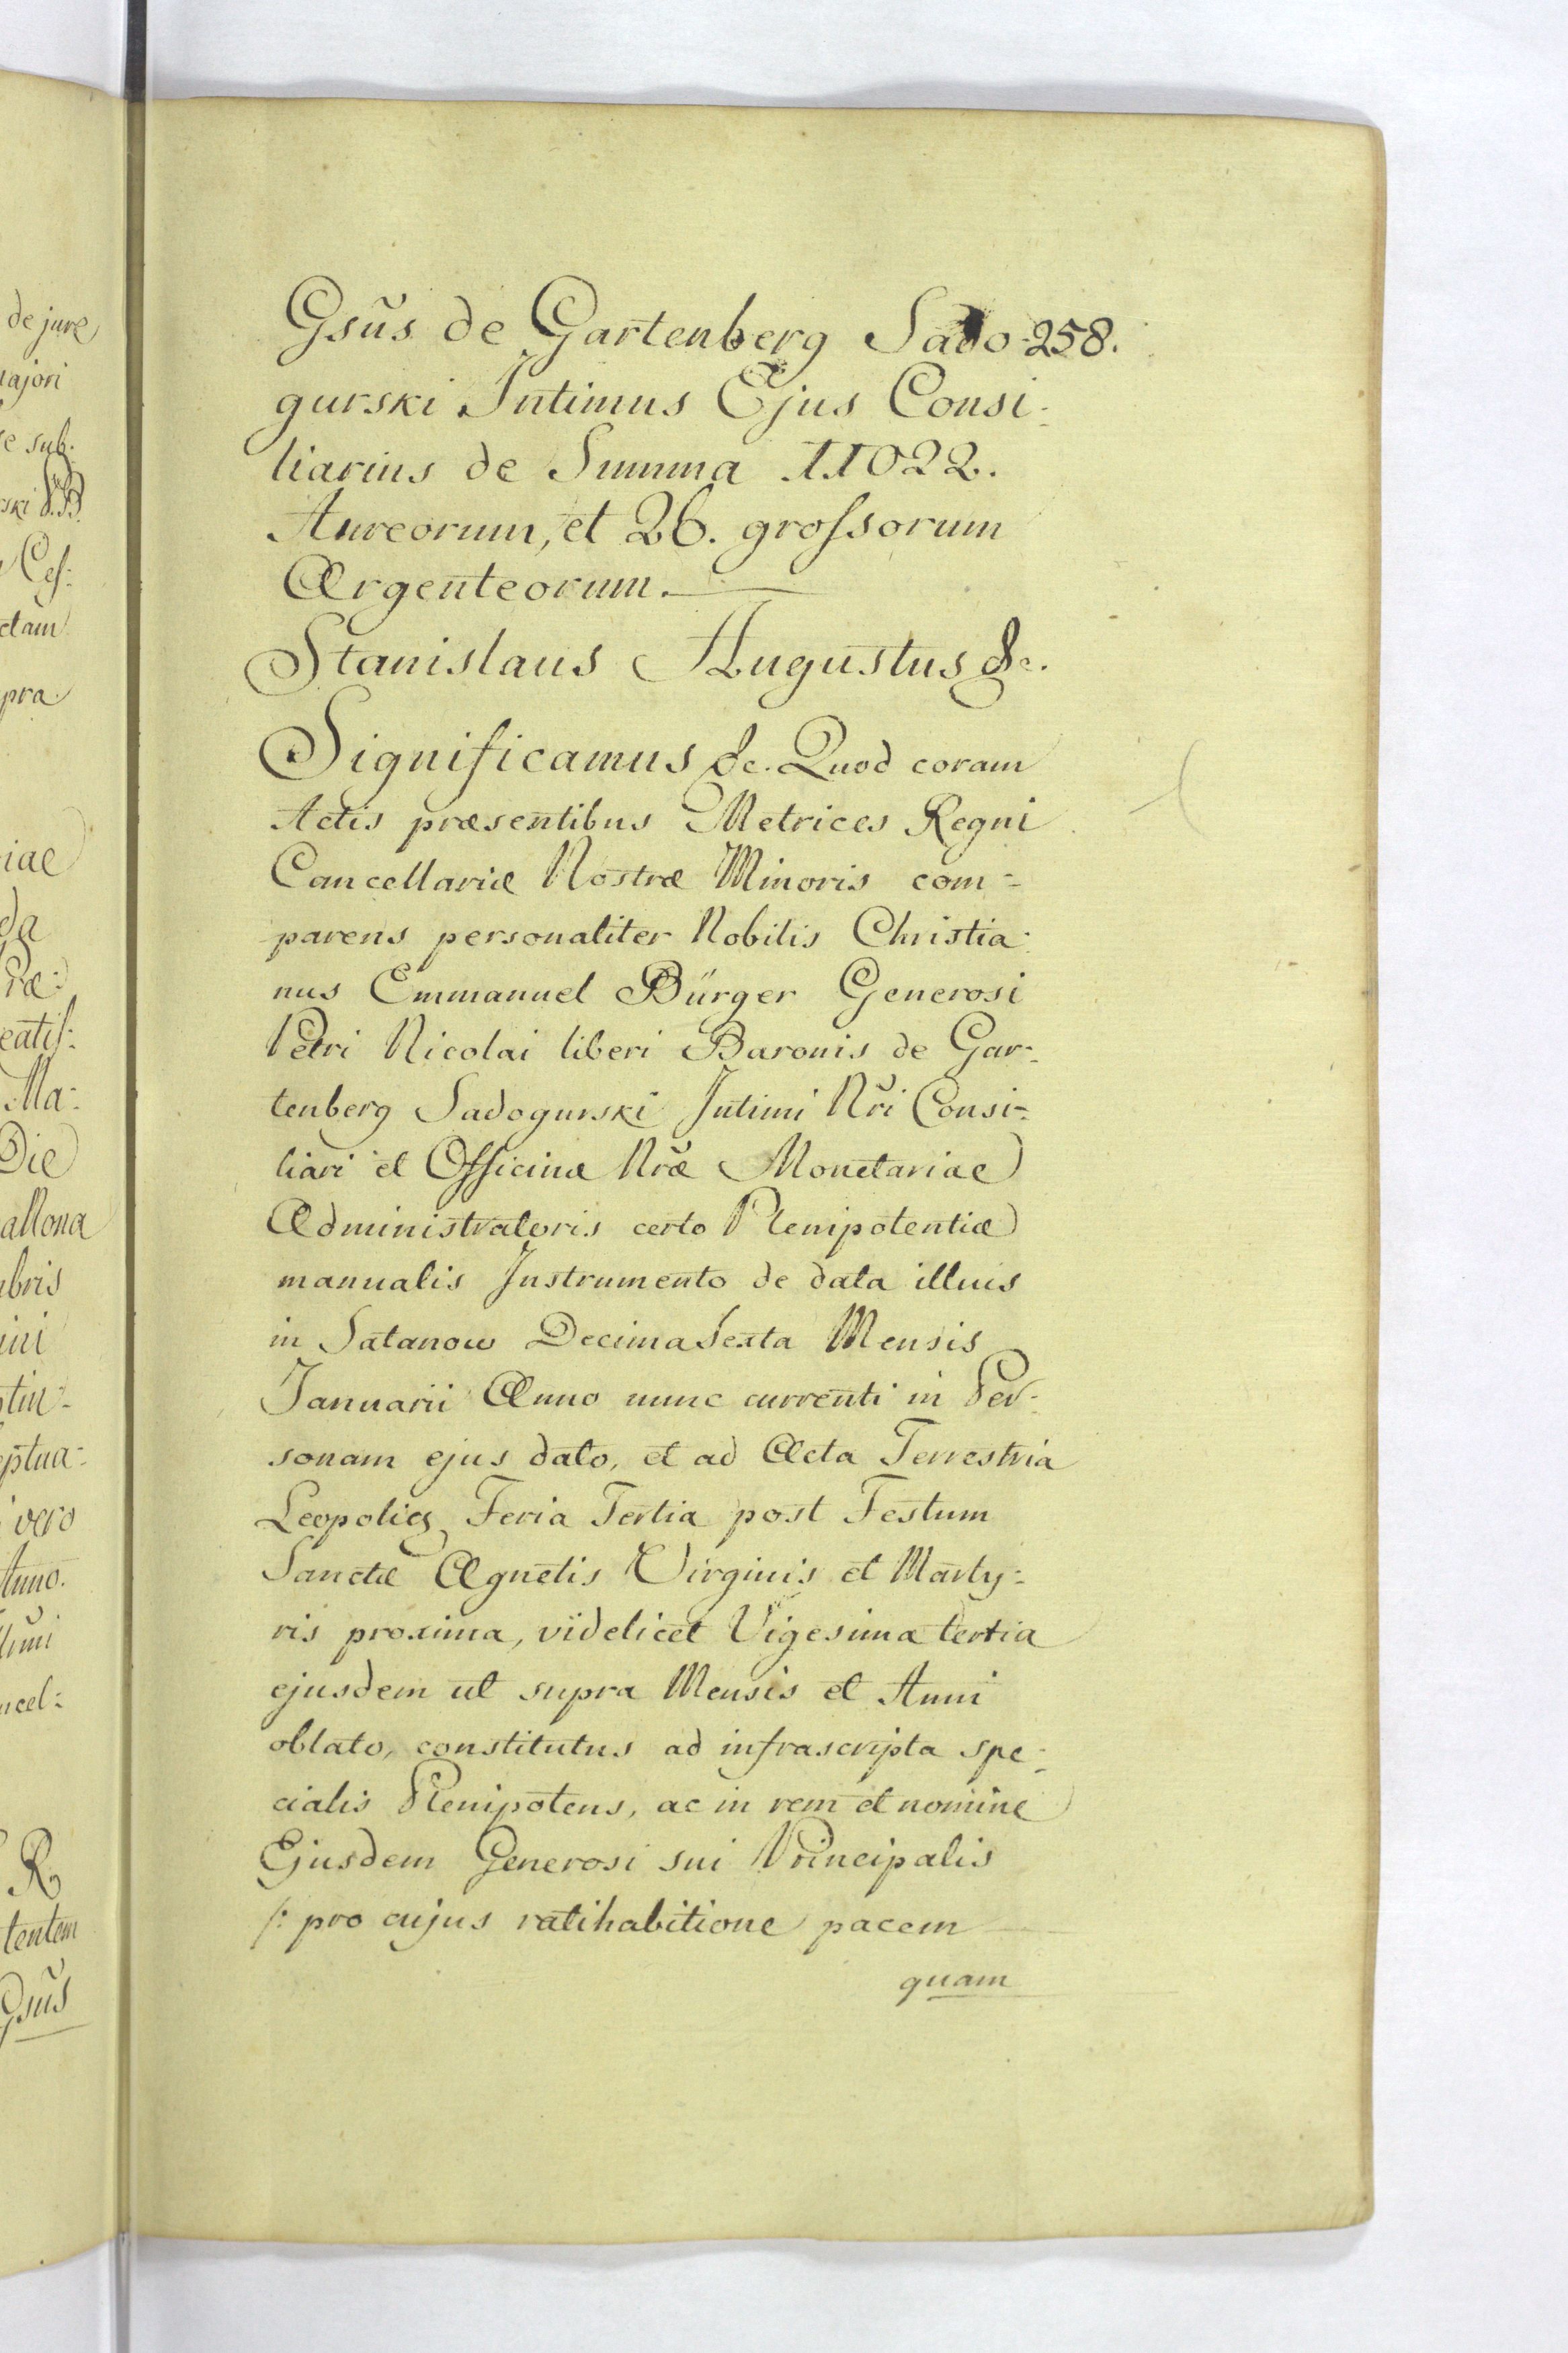 Gsūs de Gartenberg Sado- 258.
gurski Intimus Ejus Consi-
liarius de Summa 11022.
Aureorum, et 26. grossorum
Argenteorum.
Stanislaus Augustus &c.
Significamus &c. Quod coram
Actis præsentibus Metrices Regni
Cancellariæ Nostræ Minoris com=
parens personaliter Nobilis Christia-
nus Emmanuel Bürger Generosi
Petri Nicolai liberi Baronis de Gar-
tenberg Sadogurski Intimi Nri Consi=
liari et Officinæ Nræ Monetariae
Administratoris certo Plenipotentiæ
manualis Instrumento de data illius
in Satanow Decima Sexta Mensis
Januarii Anno nunc currenti in Per-
sonam ejus dato, et ad Acta Terrestria
Leopolien Feria Tertia post Festum
Sanctæ Agnetis Virginis et Marty:
ris proxima, videlicet Vigesima tertia
ejusdem ut supra Mensis et Anni
oblato, constitutus ad infrascripta spe-
cialis Plenipotens, ac in rem et nomine
Ejusdem Generosi sui Principalis
/: pro cujus ratihabitione pacem
quam
de jure
ajori
e sub.
ski S.B.
Ces:
ctam
pra
iae
da
Præ:
eatis:
Ma:
Die
allona
bris
ini
tin-
eptua:
vero
Anno.
ncel:
R
tentem
Gsūs